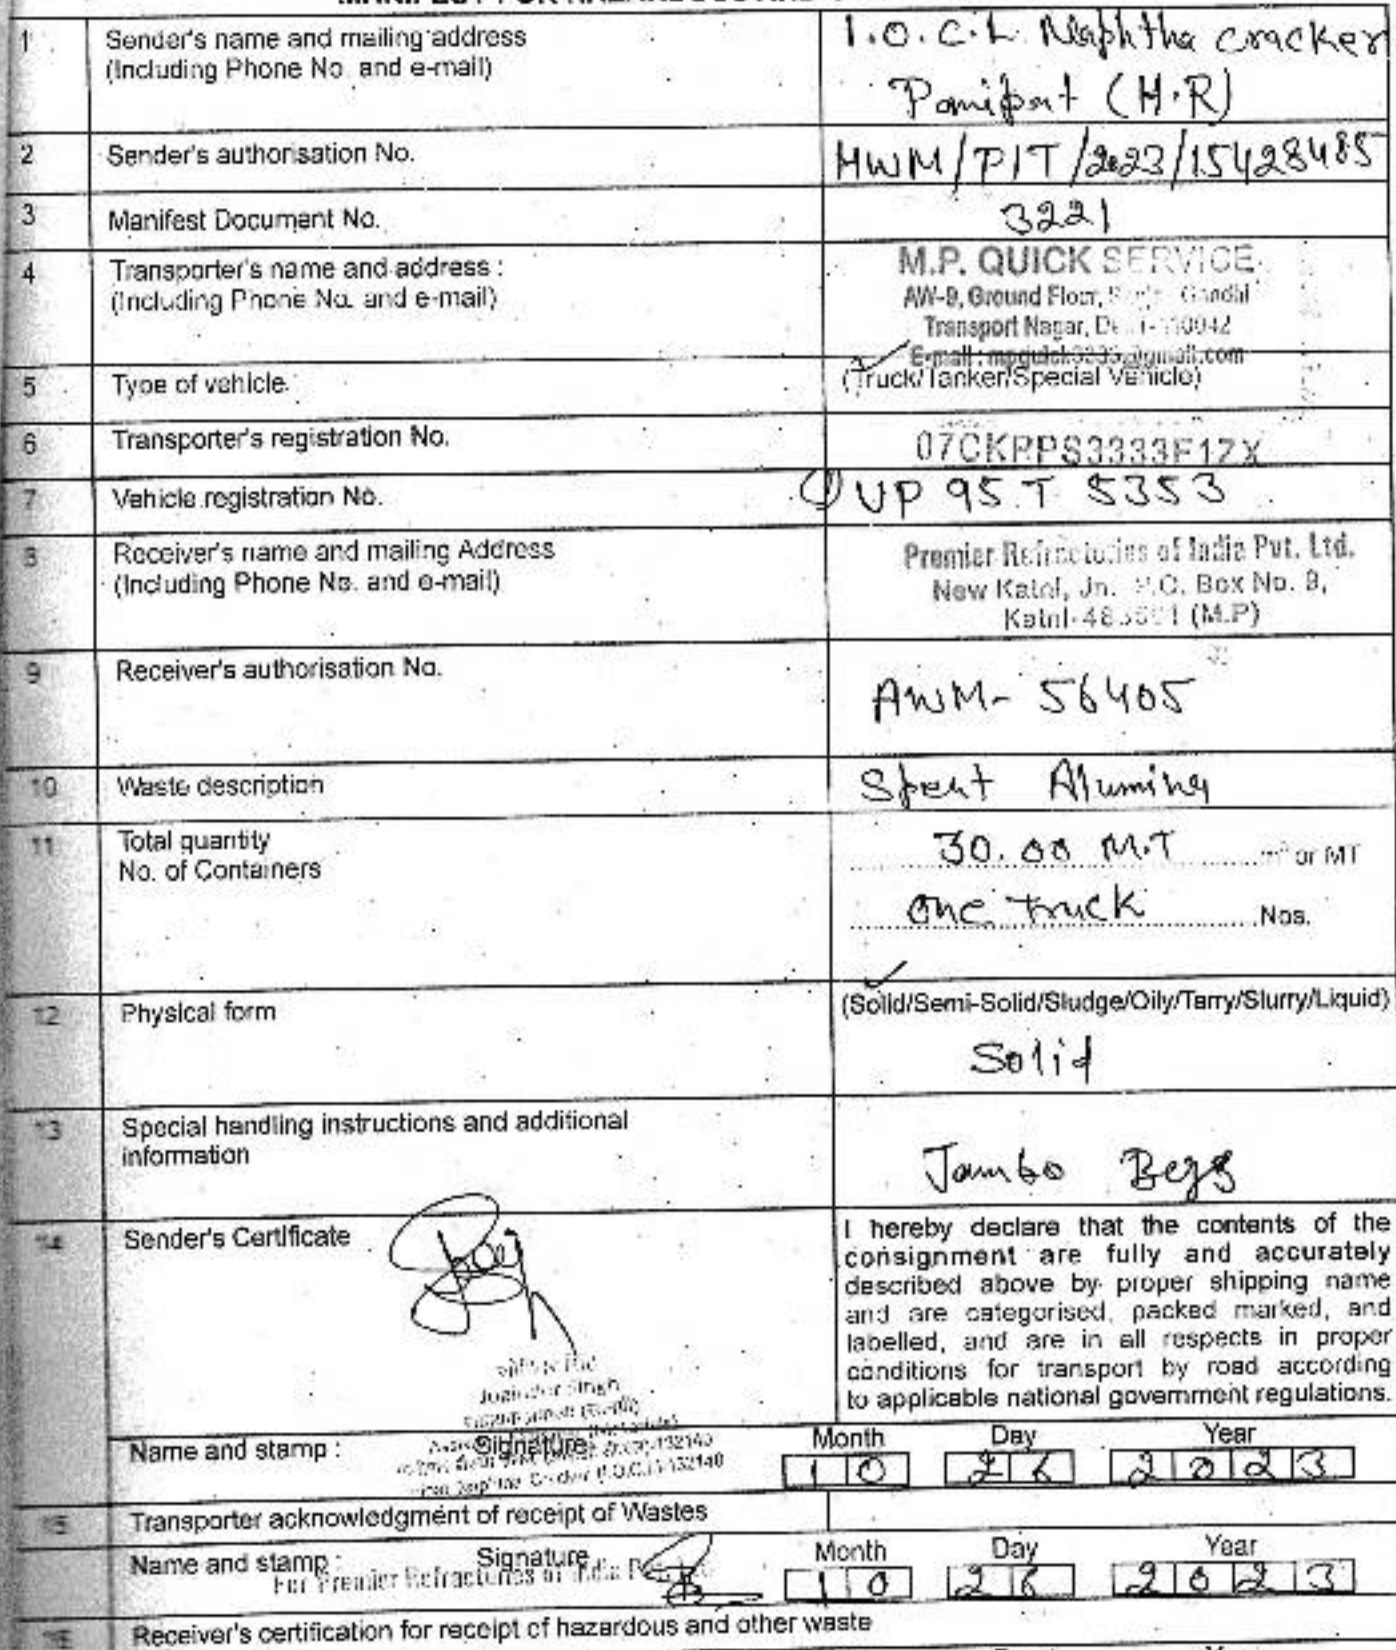 1 Sender's name and mailing address
(Including Phone No. and e-mail)
I.O.C.L Naphtha cracker
Panipat (H.R)
2 Sender's authorisation No. HWM/PIT/2023/15428485
3 Manifest Document No. 3221
4 Transporter's name and address :
(Including Phone No. and e-mail)
M.P. QUICK SERVICE
AW-9, Ground Floor, Gandhi
Transport Nagar,
5 Type of vehicle. (Truck/Tanker/Special Vehicle)
6 Transporter's registration No.
7 Vehicle registration No. ① UP 95 T 5353
8 Receiver's name and mailing Address
(Including Phone No. and e-mail)
Premier Refractories of India Pvt. Ltd.
New Katni, Jn. P.O. Box No. 9,
(M.P)
9 Receiver's authorisation No. AWM- 56405
10 Waste description Spent Alumina
11 Total quantity 30.00 M.T m³ or MT
No. of Containers one truck Nos.
12 Physical form (Solid/Semi-Solid/Sludge/Oily/Tarry/Slurry/Liquid)
Solid
13 Special handling instructions and additional
information
Jambo Begs
14 Sender's Certificate
I hereby declare that the contents of the
consignment are fully and accurately
described above by proper shipping name
and are categorised, packed marked, and
labelled, and are in all respects in proper
conditions for transport by road according
to applicable national government regulations.
Name and stamp : Signature Month Day Year
10 26 2023
15 Transporter acknowledgment of receipt of Wastes
Name and stamp : Signature Month Day Year
For Premier Refractories of India
10 26 2023
16 Receiver's certification for receipt of hazardous and other waste